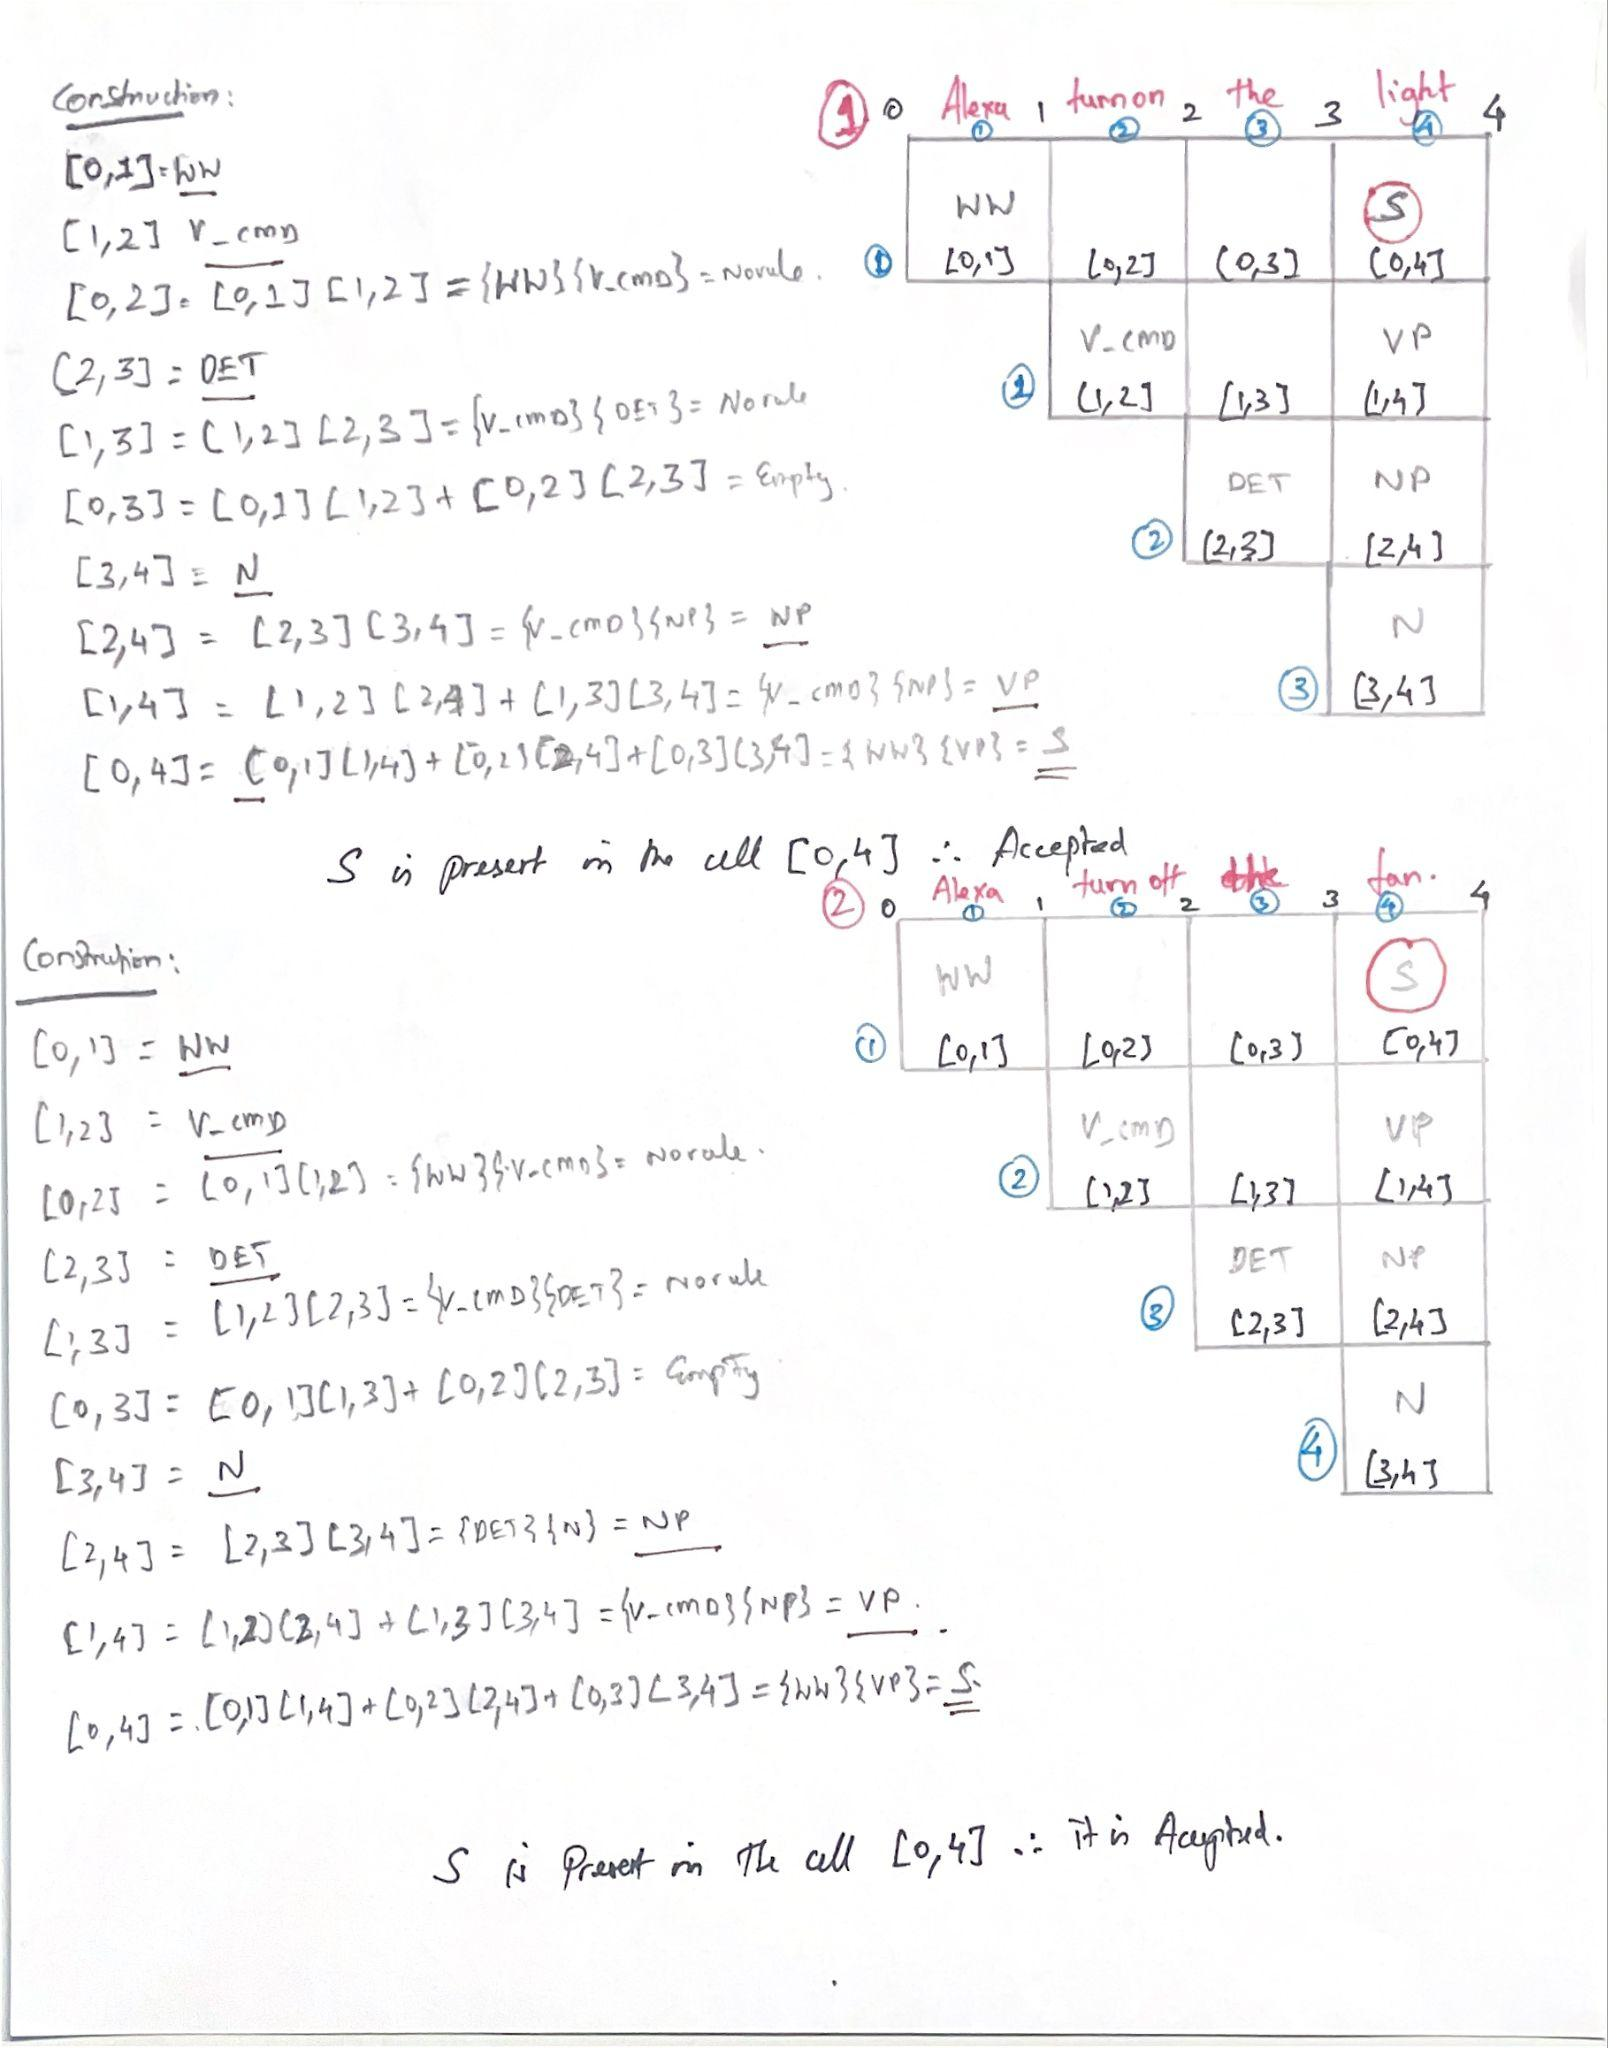 Construction:
[0,1] = WW
[1,2] V_CMD
[0,2] = [0,1] [1,2] = {WW} {V_CMD} = No rule.
[2,3] = DET
[1,3] = [1,2] [2,3] = {V_CMD} {DET} = No rule
[0,3] = [0,1] [1,2] + [0,2] [2,3] = Empty.
[3,4] = N
[2,4] = [2,3] [3,4] = {V_CMD} {NP} = NP
[1,4] = [1,2] [2,4] + [1,3] [3,4] = {V_CMD} {NP} = VP
[0,4] = [0,1] [1,4] + [0,2] [2,4] + [0,3] [3,4] = {WW} {VP} = S
1 0 Alexa 1 turn on 2 the 3 light 4
1 2 3 4
WW S
1 [0,1] [0,2] [0,3] [0,4]
V_CMD VP
1 [1,2] [1,3] [1,4]
DET NP
2 [2,3] [2,4]
N
3 [3,4]
S is present in the cell [0,4] ∴ Accepted
2 0 Alexa 1 turn off 2 the 3 fan. 4
1 2 3 4
WW S
1 [0,1] [0,2] [0,3] [0,4]
V_CMD VP
2 [1,2] [1,3] [1,4]
DET NP
3 [2,3] [2,4]
N
4 [3,4]
Construction:
[0,1] = WW
[1,2] = V_CMD
[0,2] = [0,1] [1,2] = {WW} {V_CMD} = No rule.
[2,3] = DET
[1,3] = [1,2] [2,3] = {V_CMD} {DET} = No rule
[0,3] = [0,1] [1,3] + [0,2] [2,3] = Empty
[3,4] = N
[2,4] = [2,3] [3,4] = {DET} {N} = NP
[1,4] = [1,2] [2,4] + [1,3] [3,4] = {V_CMD} {NP} = VP.
[0,4] = [0,1] [1,4] + [0,2] [2,4] + [0,3] [3,4] = {WW} {VP} = S.
S is Present in the cell [0,4] ∴ it is Accepted.